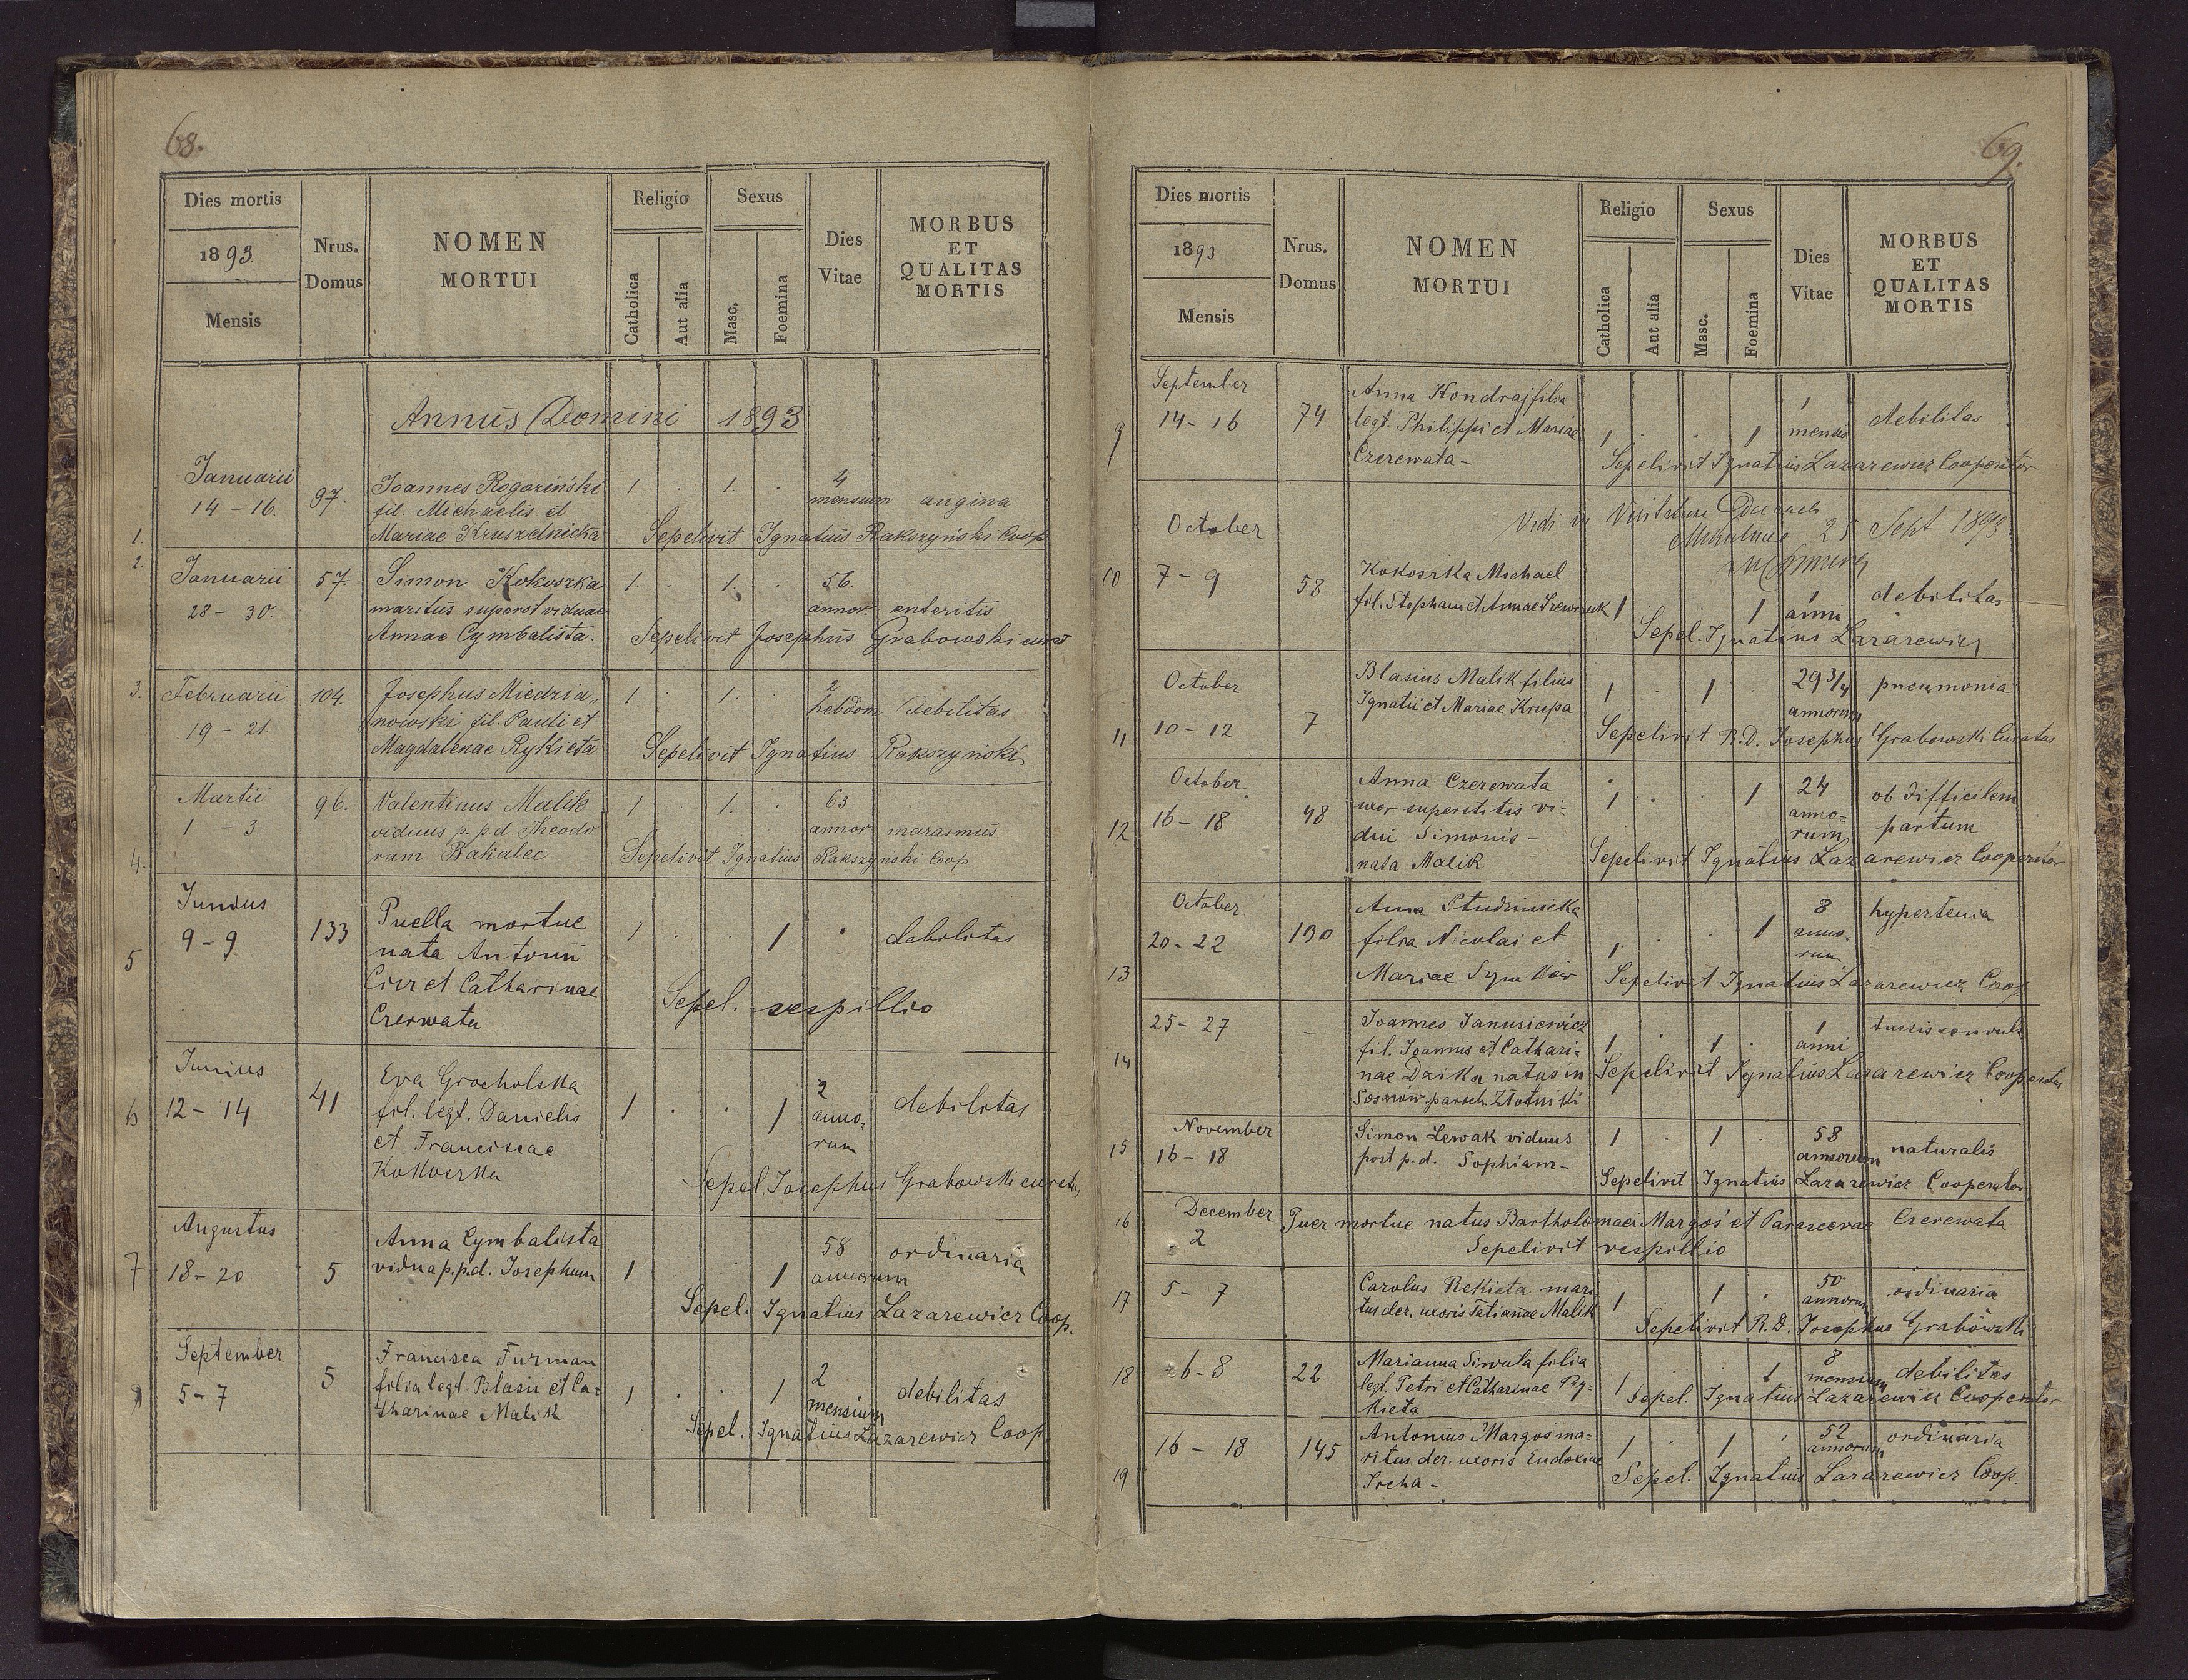 68.
Dies mortis
1893
Mensis
Nrus.
Domus
NOMEN
MORTUI
Religio
Catholica
Aut alia
Sexus
Masc.
Foemina
Dies
Vitae
MORBUS
ET
QUALITAS
MORTIS
Annus Domini 1893
1. Januarii 14 - 16. 97. Joannes Rogoziński 1. . 1. . 4 mensium angina
fil. Michaelis et
Mariae Kruszelnicka Sepelivit Ignatius Rakszyński Coop
2. Januarii 28 - 30. 57. Simon Kokoszka 1. . 1. . 56. annor. enteritis
maritus superst viduae
Annae Cymbalista. Sepelivit Josephus Grabowski curat
3. Februarii 19 - 21 104. Josephus Miedzia„ 1 . 1. . 2 hebdom debilitas
nowski fil. Pauli et
Magdalenae Rykieta Sepelivit Ignatius Rakszyński
4. Martii 1 - 3 96. Valentinus Malik 1 . 1. . 63 annor marasmus
viduus p. p.d Theodo
ram Bakalec Sepelivit Ignatius Rakszyński Coop
5 Junius 9 - 9 133 Puella mortue 1 . . 1 . debilitas
nata Antonii
Cier et Catharinae
Czerwata Sepel. vespillio
6 Junius 12 - 14 41 Eva Grocholska 1 . . 1 2 anno=rum debilitas
fil. legt. Danielis
et Franciscae
Kokoszka Sepel. Josephus Grabowski curatus
7 Augustus 18 - 20 5 Anna Cymbalista 1 . . 1 58 annorum ordinaria
vidua p.p.d. Josephum
Sepel. Ignatius Lazarewicz Coop.
8 September 5 - 7 5 Francisca Furman 1 . . 1 2 mensium debilitas
filia legt. Blasii et Ca=
tharinae Malik Sepel. Ignatius Lazarewicz Coop
69.
Dies mortis
1893
Mensis
Nrus.
Domus
NOMEN
MORTUI
Religio
Catholica
Aut alia
Sexus
Masc.
Foemina
Dies
Vitae
MORBUS
ET
QUALITAS
MORTIS
9 September 14 - 16 74 Anna Kondraj filia 1 . . 1 1 mensis debilitas
legt. Philippi et Mariae
Czerewata - Sepelivit Ignatius Lazarewicz Cooperator
Vidi in Visitatione
25 Sept 1893
10 October 7 - 9 58 Kokoszka Michael 1 1 1 anni debilitas
fil. Stephani et Annae Szewczuk
Sepel. Ignatius Lazarewicz
11 October 10 - 12 7 Blasius Malik filius 1 . 1 . 29 3/4 annorum pneumonia
Ignatii et Mariae Krupa
Sepelivit R.D. Josephus Grabowski Curatus
12 October 16 - 18 48 Anna Czerewata 1 . . 1 24 anno=rum ob difficilem
uxor superstitis vi- partum
dui Simonis -
nata Malik Sepelivit Ignatius Lazarewicz Cooperator
13 October 20 - 22 130 Anna Studnicka 1 . . 1 8 anno.rum hypertenia
filia Nicolai et
Mariae Szymków Sepelivit Ignatius Lazarewicz Coop
14 25 - 27 - Joannes Janusiewicz 1 . 1 . 1 anni tussis convuls
fil. Joannis et Cathari=
nae Dzika natus in Sepelivit Ignatius Lazarewicz Cooperator
Sosnów paroch Złotniki
15 November 16 - 18 Simon Lewak viduus 1 . 1 . 58 annorum naturalis
post p.d. Sophiam -
Sepelivit Ignatius Lazarewicz Cooperator
16 December 2 Puer mortue natus Bartholomaei Margoś et Parascevae Czerewata
Sepelivit vespillio
17 5 - 7 Carolus Rekieta mari 1 1 . 50 annorum ordinaria
tus der. uxoris Tatianae Malik
Sepelivit R.D. Josephus Grabowski
18 6 - 8 22 Marianna Siwuta filia 1 . . 1 8 mensium debilitas
legt. Petri et Catharinae Ry=
kieta Sepel. Ignatius Lazarewicz Cooperator
19 16 - 18 145 Antonius Margoś ma= 1 . 1 . 52 annorum ordinaria
ritus der. uxoris Eudoxiae
Ircha - Sepel. Ignatius Lazarewicz Coop.